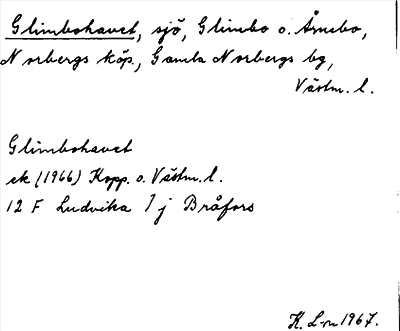 Glimbohavet, sjö, Glimbo o. Årnebo,
Norbergs köp., Gamla Norbergs bg,
Västm. l.
Glimbohavet
ek (1966) Kopp. o. Västm. l.
12 F Ludvika 1 j Bråfors
K. L-m 1967.